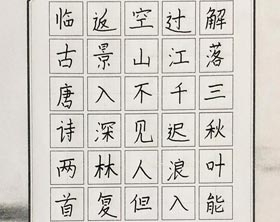 解落三秋叶能
过江千迟浪入
空山不见人但
返景入深林复
临古唐诗两首